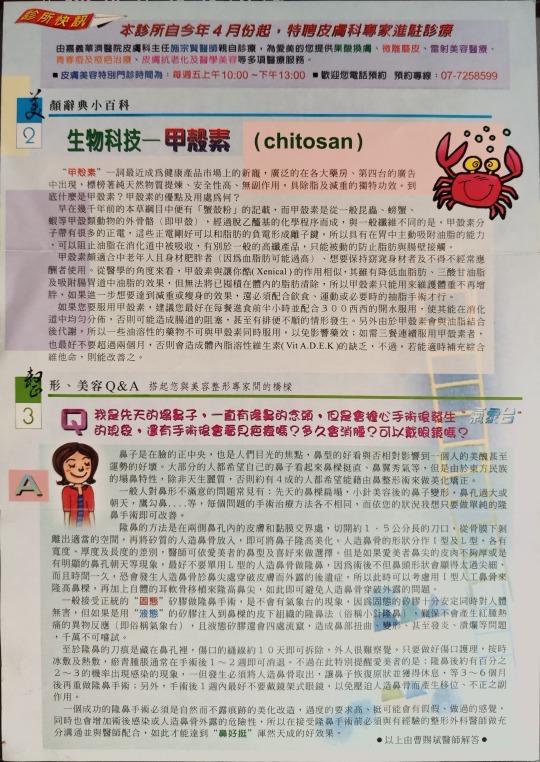 診所快訊
本診所自今年4月份起，特聘皮膚科專家進駐診療
由嘉義華濟醫院皮膚科主任施宗賢醫師親自診療，為愛美的您提供果酸換膚、微雕磨皮、雷射美容醫療、
青春痘及痘疤治療、皮膚抗老化及醫學美容等多項醫療服務。
■皮膚美容特別門診時間為：每週五上午10:00～下午13:00 ■歡迎您電話預約 預約專線：07-7258599
美
顏辭典小百科
2
生物科技—甲殼素 (chitosan)
"甲殼素"一詞最近成為健康產品市場上的新寵，廣泛的在各大藥房、第四台的廣告
中出現，標榜著純天然物質提煉、安全性高、無副作用，具除脂及減重的獨特功效。到
底什麼是甲殼素？甲殼素的優點及用處為何？
早在幾千年前的本草綱目中便有「蟹殼粉」的記載，而甲殼素是從一般昆蟲、螃蟹、
蝦等甲殼類動物的外骨骼（即甲殼），經過脫乙醯基的化學程序而成，與一般纖維不同的是，甲殼素分
子帶有很多的正電，這些正電剛好可以和脂肪的負電形成離子鍵，所以具有在胃中主動吸附油脂的能力
，可以阻止油脂在消化道中被吸收，有別於一般的高纖產品，只能被動的防止脂肪與腸壁接觸。
甲殼素頗適合中老年人且身材肥胖者（因為血脂肪可能過高）、想要保持窈窕身材者及不得不經常應
酬者使用。從醫學的角度來看，甲殼素與讓你酷(Xenical)的作用相似，其雖有降低血脂肪、三酸甘油脂
及吸附腸胃道中油脂的效果，但無法將已囤積在體內的脂肪清除，所以甲殼素只能用來維護體重不再增
胖，如果進一步想要達到減重或瘦身的效果，還必須配合飲食、運動或必要時的抽脂手術才行。
如果您要服用甲殼素，建議您最好在每餐進食前半小時並配合300西西的開水服用，使其能在消化
道中均勻分佈，否則可能造成腸道的阻塞，甚至有排便不順的情形發生。另外由於甲殼素會與油脂結合
後代謝，所以一些油溶性的藥物不可與甲殼素同時服用，以免影響藥效；如需三餐連續服用甲殼素者，
也最好不要超過兩個月，否則會造成體內脂溶性維生素(Vit A.D.E.K)的缺乏，不過，若能適時補充綜合
維他命，則能改善之。
整
形、美容Q&A 搭起您與美容整形專家間的橋樑
3
Q 我是先天的塌鼻子，一直有隆鼻的念頭，但是會擔心手術後發生"氣象台"
的現象，還有手術後會看見疤痕嗎？多久會消腫？可以戴眼鏡嗎？
A
鼻子是在臉的正中央，也是人們目光的焦點，鼻型的好看與否相對影響到一個人的美醜甚至
運勢的好壞。大部分的人都希望自己的鼻子看起來鼻樑挺直、鼻翼秀氣等，但是由於東方民族
的塌鼻特性，除非天生麗質，否則約有4成的人都希望能藉由鼻整形術來做美化矯正。
一般人對鼻形不滿意的問題常見有：先天的鼻樑扁塌，小針美容後的鼻子變形、鼻孔過大或
朝天，鷹勾鼻....等，每個問題的手術治療方法各不相同，而依您的狀況我想只要做單純的隆
鼻手術即可改善。
隆鼻的方法是在兩側鼻孔內的皮膚和黏膜交界處，切開約1．5公分長的刀口，從骨膜下剝
離出適當的空間，再將矽質的人造鼻骨放入，即可將鼻子隆高美化。人造鼻骨的形狀分作I型及L型，各有
寬度、厚度及長度的差別，醫師可依愛美者的鼻型及喜好來做選擇。但是如果愛美者鼻尖的皮肉不夠厚或是
有明顯的鼻孔朝天等現象，最好不要單用L型的人造鼻骨做隆鼻，因為術後不但鼻頭形狀會顯得太過尖細，
而且時間一久，恐會發生人造鼻骨於鼻尖處穿破皮膚而外露的後遺症，所以此時可以考慮用I型人工鼻骨來
隆高鼻樑，再加上自體的耳軟骨移植來隆高鼻尖，如此即可避免人造鼻骨穿破外露的問題。
一般接受正統的"固態"矽膠做隆鼻手術，是不會有氣象台的現象，因為固態的矽膠十分安定同時對人體
無害，但如果是用"液態"的矽膠注入到鼻樑的皮下組織的隆鼻法（俗稱小針隆鼻），難保不會產生紅腫熱
痛的異物反應（即俗稱氣象台），且液態矽膠還會四處流竄，造成鼻部扭曲、變形，甚至發炎、潰爛等問題
，千萬不可嚐試。
至於隆鼻的刀痕是藏在鼻孔裡，傷口的縫線約10天即可拆除，外人很難察覺，只要做好傷口護理，按時
冰敷及熱敷，瘀青腫脹通常在手術後1～2週即可消退，不過在此特別提醒愛美者的是：隆鼻後約有百分之
2～3的機率出現感染的現象，一但發生必須將人造鼻骨取出，讓鼻子恢復原狀並獲得休息，等3～6個月
後再重做隆鼻手術；另外，手術後1週內最好不要戴鏡架式眼鏡，以免壓迫人造鼻骨而產生移位、不正之副
作用。
一個成功的隆鼻手術必須是自然而不露痕跡的美化改造，過度的要求高、挺可能會有假假、做過的感覺，
同時也會增加術後感染或人造鼻骨外露的危險性，所以在接受隆鼻手術前必須與有經驗的整形外科醫師做充
分溝通並與醫師配合，如此才能達到"鼻好挺"渾然天成的好效果。
●以上由曹賜斌醫師解答●